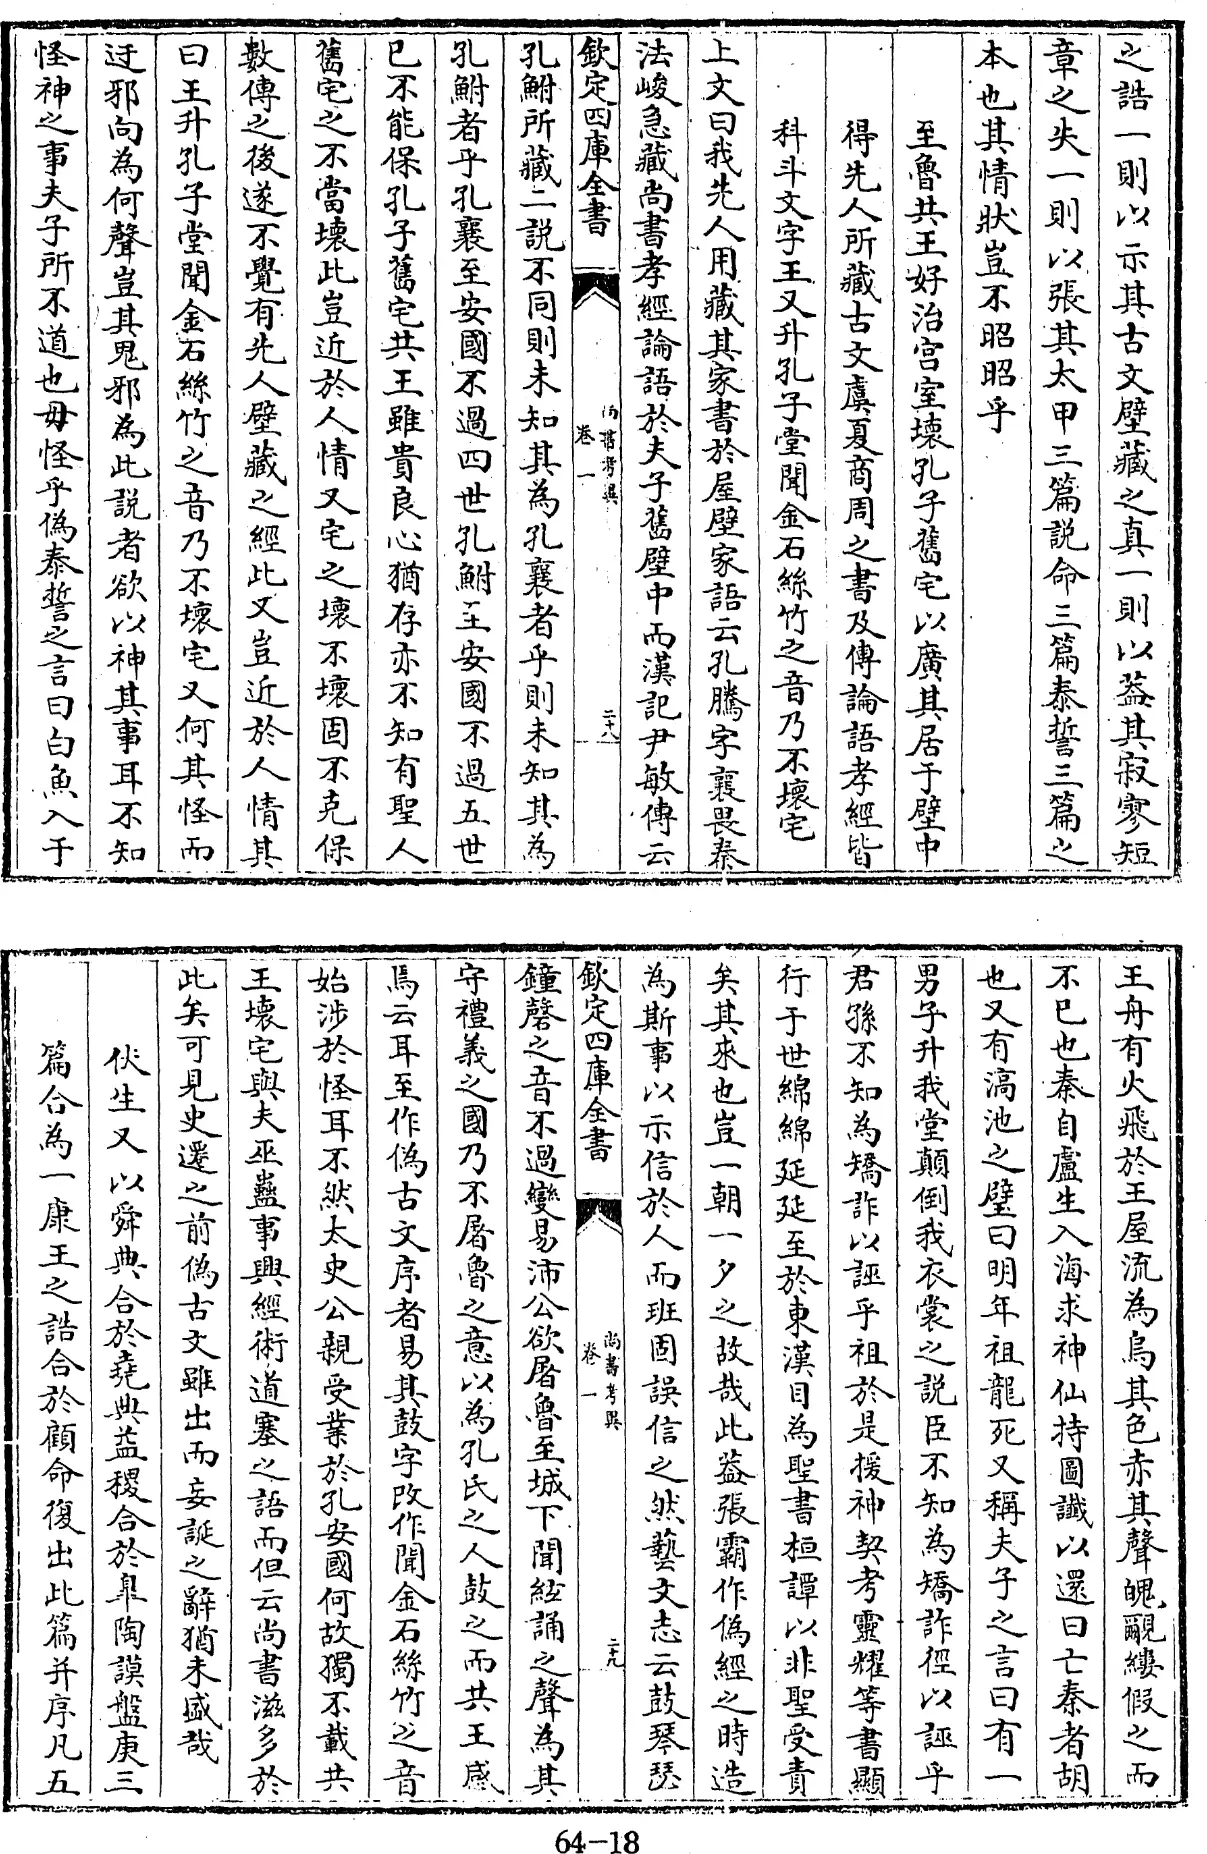 之誥一則以示其古文壁藏之真一則以蓋其寂寥短
章之失一則以張其太甲三篇說命三篇泰誓三篇之
本也其情狀豈不昭昭乎
至魯共王好治宮室壞孔子舊宅以廣其居于壁中
得先人所藏古文虞夏商周之書及傳論語孝經皆
科斗文字王又升孔子堂聞金石絲竹之音乃不壞宅
上文曰我先人用藏其家書於屋壁家語云孔騰字襄畏秦
法峻急藏尚書孝經論語於夫子舊壁中而漢記尹敏傳云
欽定四庫全書
尚書考異
卷一
二十八
孔鮒所藏二說不同則未知其為孔襄者乎則未知其為
孔鮒者乎孔襄至安國不過四世孔鮒至安國不過五世
已不能保孔子舊宅共王雖貴良心猶存亦不知有聖人
舊宅之不當壞此豈近於人情又宅之壞不壞固不克保
數傳之後遂不覺有先人壁藏之經此又豈近於人情其
曰王升孔子堂聞金石絲竹之音乃不壞宅又何其怪而
迂邪向為何聲豈其鬼邪為此說者欲以神其事耳不知
怪神之事夫子所不道也毋怪乎偽泰誓之言曰白魚入于
王舟有火飛於王屋流為烏其色赤其聲魄覼縷假之而
不已也秦自盧生入海求神仙持圖讖以還曰亡秦者胡
也又有滈池之璧曰明年祖龍死又稱夫子之言曰有一
男子升我堂顛倒我衣裳之說臣不知為矯詐徑以誣乎
君孫不知為矯詐以誣乎祖於是援神契考靈耀等書顯
行于世綿綿延延至於東漢目為聖書桓譚以非聖受責
矣其來也豈一朝一夕之故哉此蓋張霸作偽經之時造
為斯事以示信於人而班固誤信之然藝文志云鼓琴瑟
欽定四庫全書
尚書考異
卷一
二十九
鐘磬之音不過變易沛公欲屠魯至城下聞絃誦之聲為其
守禮義之國乃不屠魯之意以為孔氏之人鼓之而共王感
焉云耳至作偽古文序者易其鼓字改作聞金石絲竹之音
始涉於怪耳不然太史公親受業於孔安國何故獨不載共
王壞宅與夫巫蠱事興經術道塞之語而但云尚書滋多於
此矣可見史遷之前偽古文雖出而妄誕之辭猶未盛哉
伏生又以舜典合於堯典益稷合於臯陶謨盤庚三
篇合為一康王之誥合於顧命復出此篇并序凡五
64-18